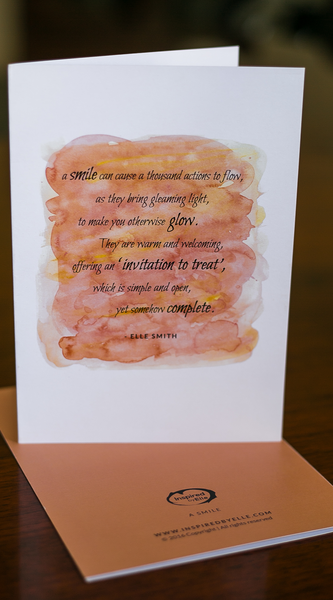 a smile can cause a thousand actions to flow,
as they bring gleaming light,
to make you otherwise glow.
They are warm and welcoming,
offering an 'invitation to treat',
which is simple and open,
yet somehow complete.
- ELLE SMITH
inspired
by Elle
A SMILE
WWW.INSPIREDBYELLE.COM
© 2016 Copyright | All rights reserved